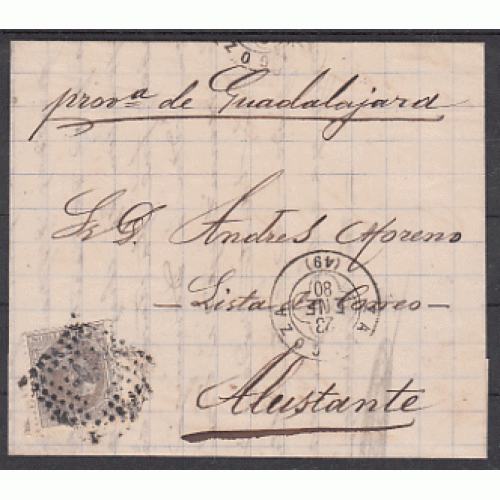 prov.ª de Guadalajara
Sr D. Andres Moreno
- Lista de Correo -
Alustante
ZA
(49)
23
ENE
80